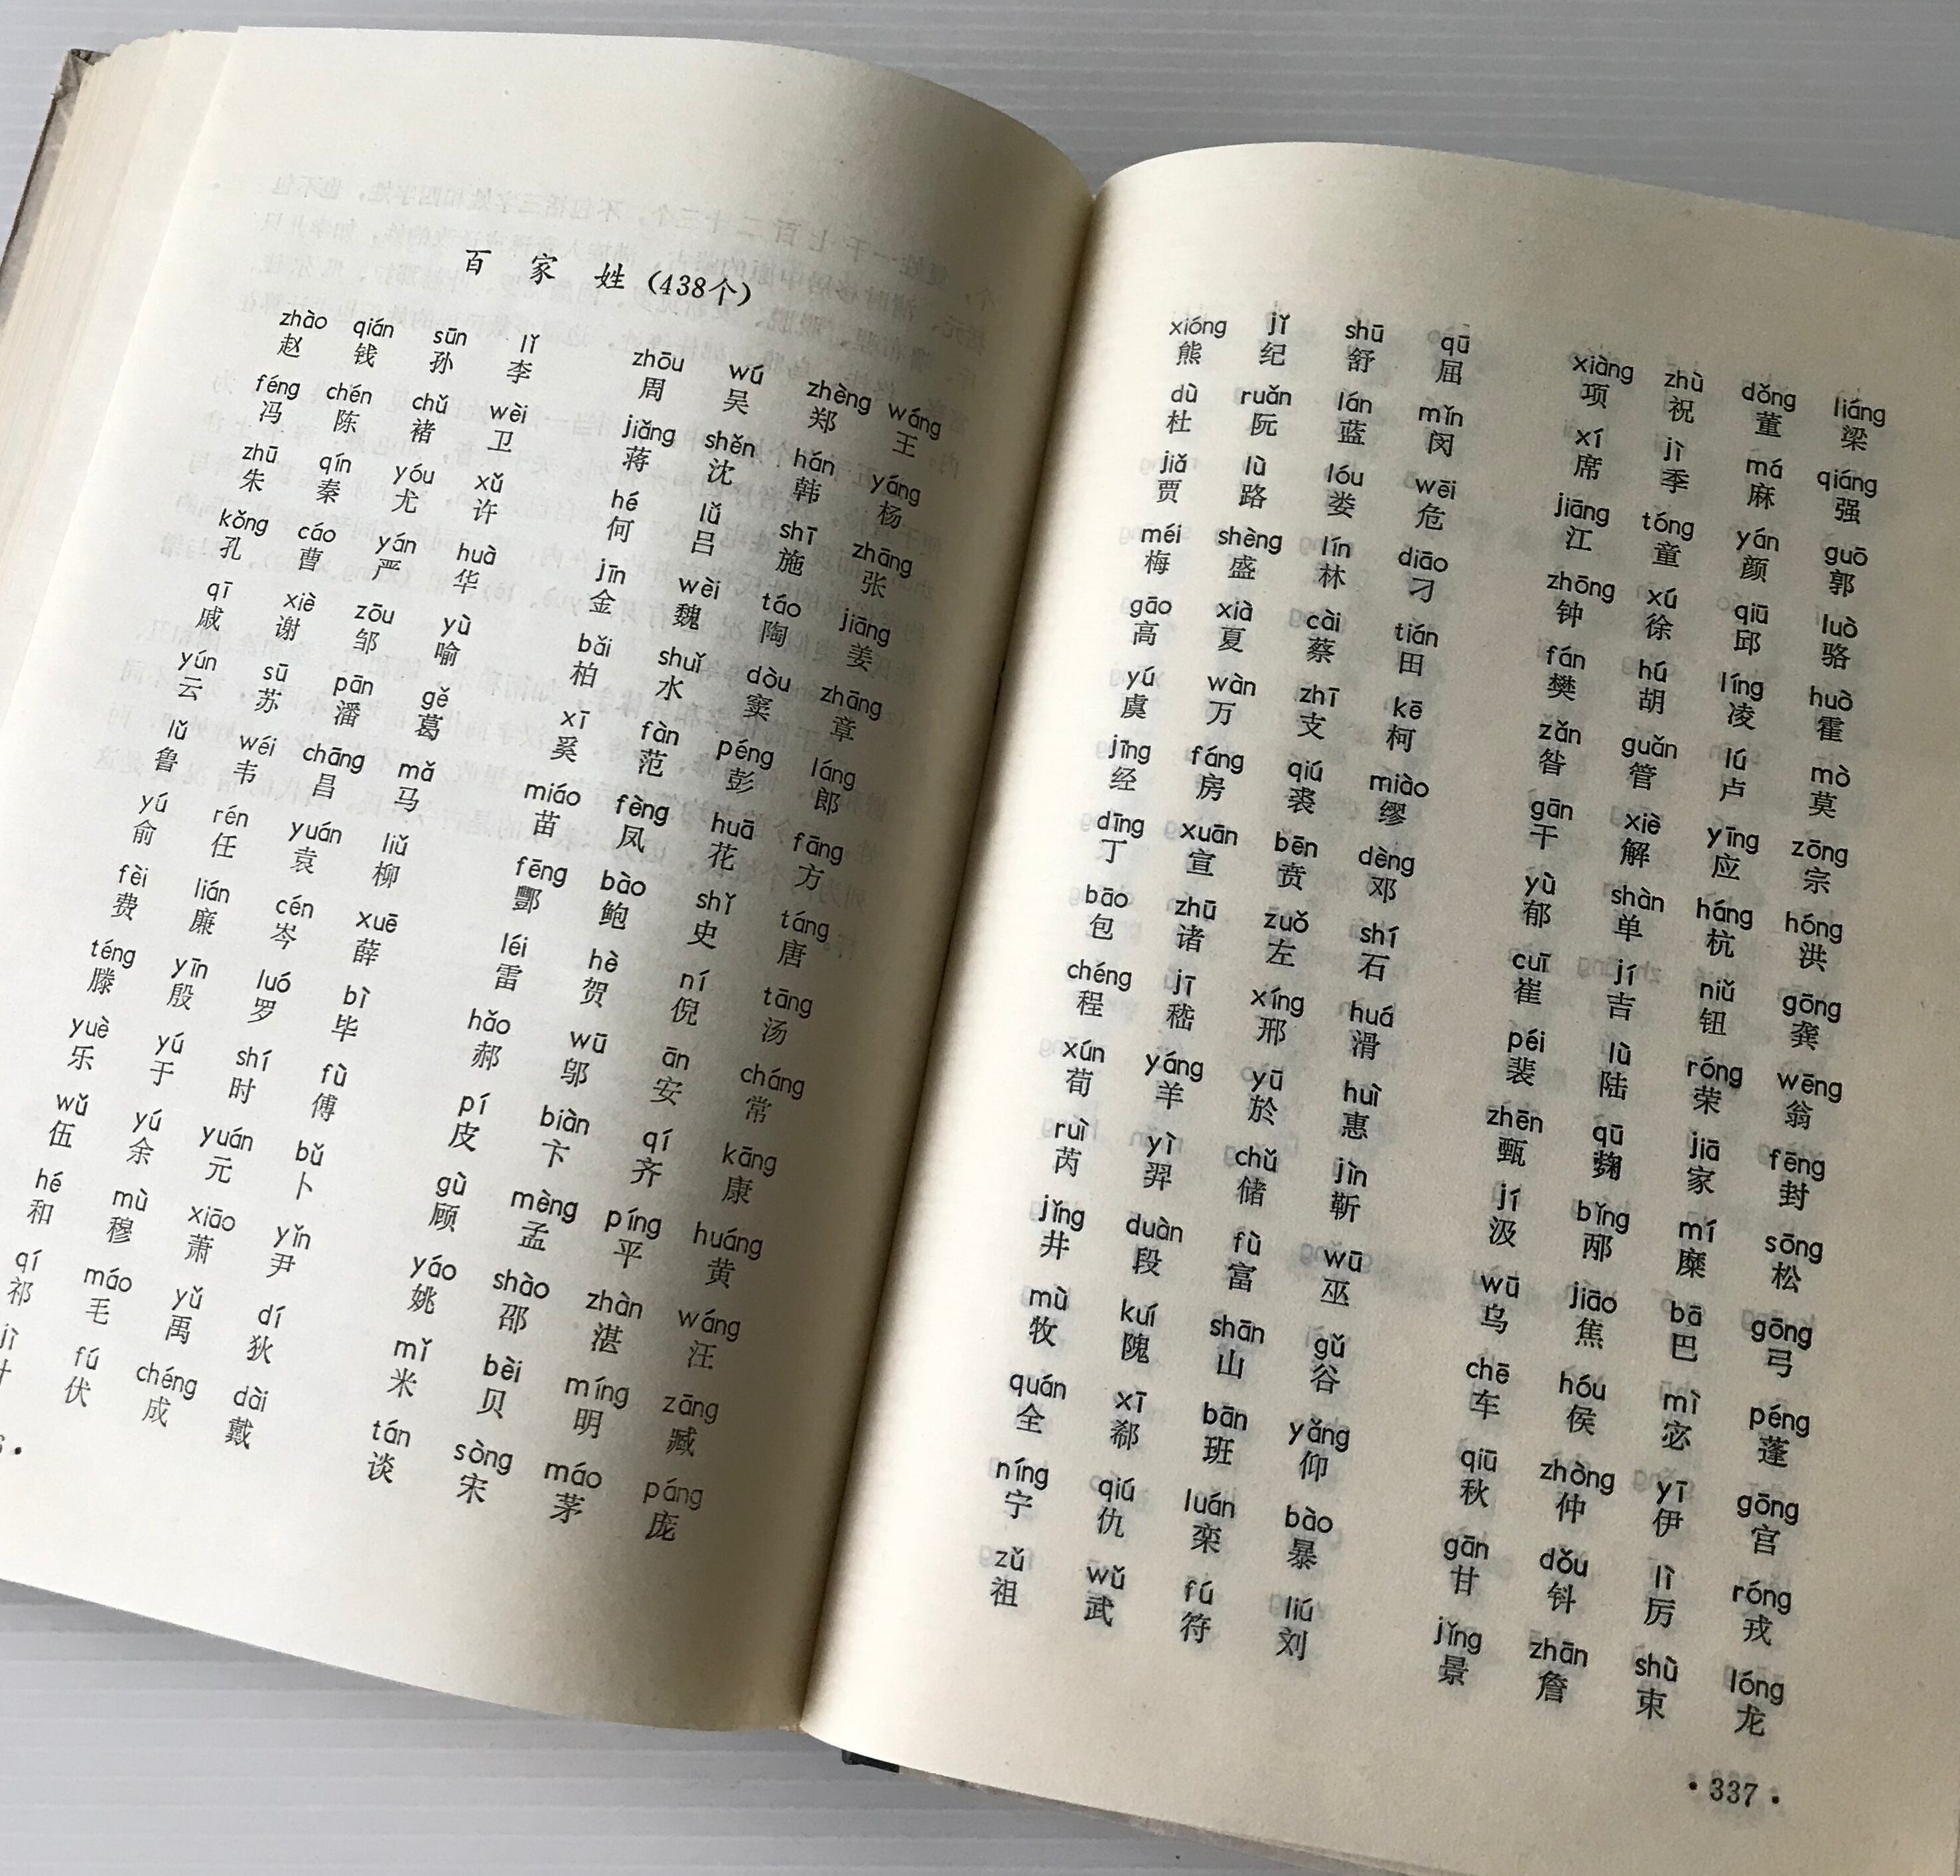 百家姓（438个）
zhào qián sūn lǐ zhōu wú zhèng wáng
赵 钱 孙 李 周 吴 郑 王
féng chén chǔ wèi jiǎng shěn hán yáng
冯 陈 褚 卫 蒋 沈 韩 杨
zhū qín yóu xǔ hé lǚ shī zhāng
朱 秦 尤 许 何 吕 施 张
kǒng cáo yán huà jīn wèi táo jiāng
孔 曹 严 华 金 魏 陶 姜
qī xiè zōu yù bǎi shuǐ dòu zhāng
戚 谢 邹 喻 柏 水 窦 章
yún sū pān gě xī fàn péng láng
云 苏 潘 葛 奚 范 彭 郎
lǔ wéi chāng mǎ miáo fèng huā fāng
鲁 韦 昌 马 苗 凤 花 方
yú rén yuán liǔ fēng bào shǐ táng
俞 任 袁 柳 酆 鲍 史 唐
fèi lián cén xuē léi hè ní tāng
费 廉 岑 薛 雷 贺 倪 汤
téng yīn luó bì hǎo wū ān cháng
滕 殷 罗 毕 郝 邬 安 常
yuè yú shí fù pí biàn qí kāng
乐 于 时 傅 皮 卞 齐 康
wǔ yú yuán bǔ gù mèng píng huáng
伍 余 元 卜 顾 孟 平 黄
hé mù xiāo yǐn yáo shào zhàn wáng
和 穆 萧 尹 姚 邵 湛 汪
qí máo yǔ dí mǐ bèi míng zāng
祁 毛 禹 狄 米 贝 明 臧
jì fú chéng dài tán sòng máo páng
伏 成 戴 谈 宋 茅 庞
xióng jǐ shū qū xiàng zhù dǒng liáng
熊 纪 舒 屈 项 祝 董 梁
dù ruǎn lán mǐn xí jì má qiáng
杜 阮 蓝 闵 席 季 麻 强
jiǎ lù lóu wēi jiāng tóng yán guō
贾 路 娄 危 江 童 颜 郭
méi shèng lín diāo zhōng xú qiū luò
梅 盛 林 刁 钟 徐 邱 骆
gāo xià cài tián fán hú líng huò
高 夏 蔡 田 樊 胡 凌 霍
yú wàn zhī kē zǎn guǎn lú mò
虞 万 支 柯 昝 管 卢 莫
jīng fáng qiú miào gān xiè yīng zōng
经 房 裘 缪 干 解 应 宗
dīng xuān bēn dèng yù shàn háng hóng
丁 宣 贲 邓 郁 单 杭 洪
bāo zhū zuǒ shí cuī jí niǔ gōng
包 诸 左 石 崔 吉 钮 龚
chéng jī xíng huá péi lù róng wēng
程 嵇 邢 滑 裴 陆 荣 翁
xún yáng yū huì zhēn qū jiā fēng
荀 羊 於 惠 甄 麹 家 封
ruì yì chǔ jìn jí bǐng mí sōng
芮 羿 储 靳 汲 邴 糜 松
jǐng duàn fù wū wū jiāo bā gōng
井 段 富 巫 乌 焦 巴 弓
mù kuí shān gǔ chē hóu mì péng
牧 隗 山 谷 车 侯 宓 蓬
quán xī bān yǎng qiū zhòng yī gōng
全 郗 班 仰 秋 仲 伊 宫
níng qiú luán bào gān dǒu lì róng
宁 仇 栾 暴 甘 钭 厉 戎
zǔ wǔ fú liú jǐng zhān shù lóng
祖 武 符 刘 景 詹 束 龙
·337·